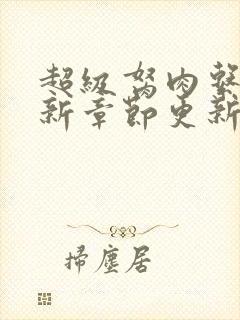 超級肉
新章節更新
掃塵居